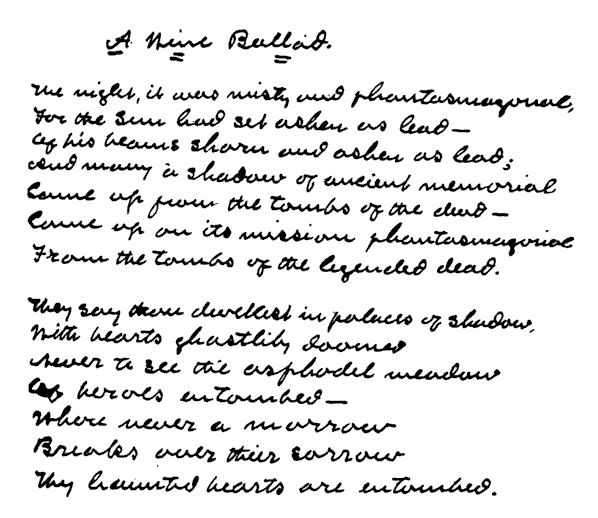 A Wine Ballad.
The night, it was misty and phantasmagorial,
For the sun had set ashen as lead—
Of his beams shorn and ashen as lead;
And many a shadow of ancient memorial
Came up from the tombs of the dead—
Came up on its mission phantasmagorial
From the tombs of the legended dead.
They say thou dwellest in palaces of shadow,
With hearts ghastlily doomed
Never to see the asphodel meadow
Of heroes entombed—
Where never a morrow
Breaks over thier sorrow
Thy haunted hearts are entombed.